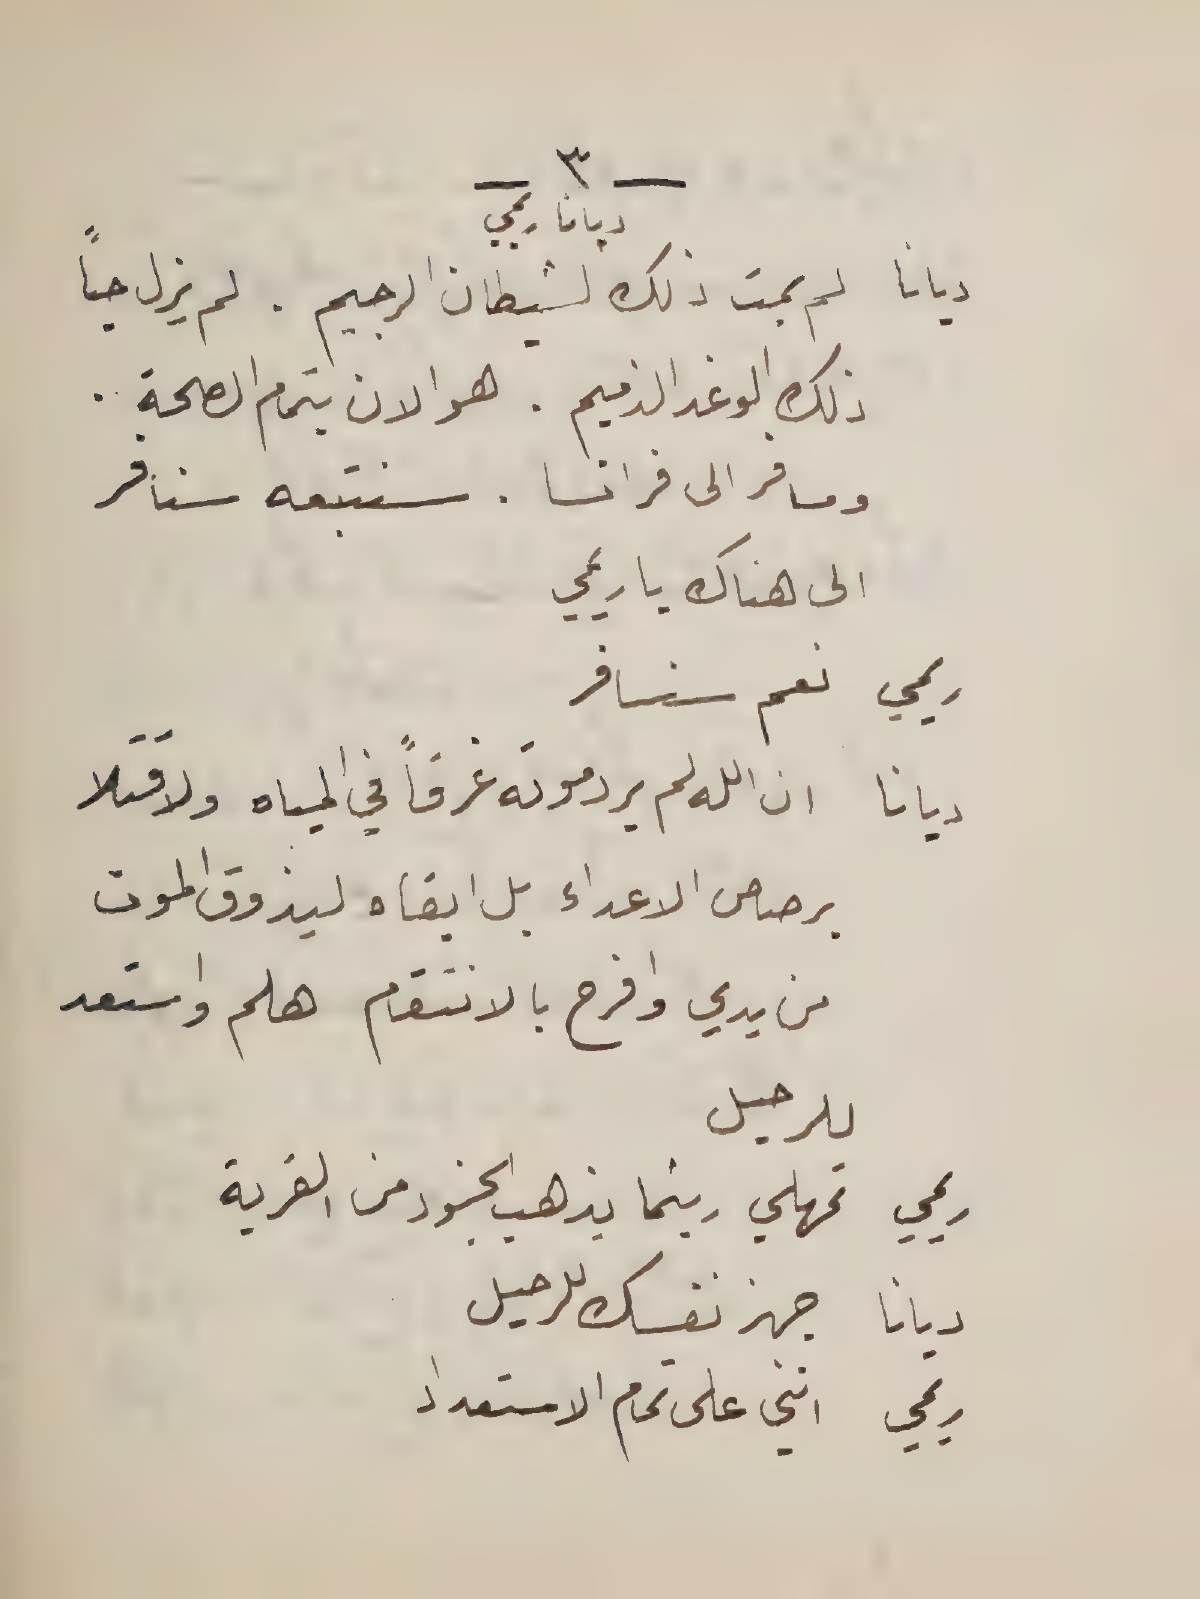 — ٣ —
ديانا ريمي
ديانا لم يمت ذلك الشيطان الرجيم . لم يزل حياً
ذلك الوغد الذميم . هو الان بتمام الصحة ..
ومسافر الى فرانسا . سنتبعه سنسافر
الى هناك يا ريمي
ريمي نعم سنسافر
ديانا ان الله لم يرد موته غرقاً في المياه ولا قتلا
برصاص الاعداء بل ابقاه ليذوق الموت
من يدي وافرح بالانتقام هلم واستعد
للرحيل
ريمي تمهلي ريثما يذهب الجنود من القرية
ديانا جهز نفسك للرحيل
ريمي انني على تمام الاستعداد